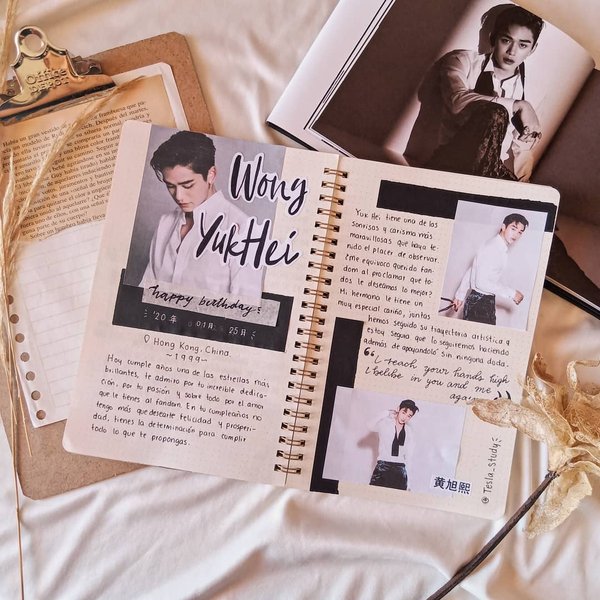 Office
DEPOT
Wong
YukHei
happy birthday
'20年 01月 25日
Hong Kong, China
~1999~
Hoy cumple años una de las estrellas más
brillantes, te admiro por tu increíble dedica-
ción, por tu pasión y sobre todo por el amor
que le tienes al fandom. En tu cumpleaños no
tengo más que desearte felicidad y prosperi-
dad, tienes la determinación para cumplir
todo lo que te propongas.
Yuk Hei tiene una de las
sonrisas y carisma más
maravillosas que haya te-
nido el placer de observar
¿Me equivoco querido fan-
dom al proclamar que to-
dos le deseamos lo mejor?
Mi hermana le tiene un
muy especial cariño, juntas
hemos seguido su trayectoria artística y
estoy segura que lo seguiremos haciendo
además de apoyándolo sin ninguna duda.
“I reach your hands high
I belibe in you and me
again”
黄旭熙
@Tesla_study